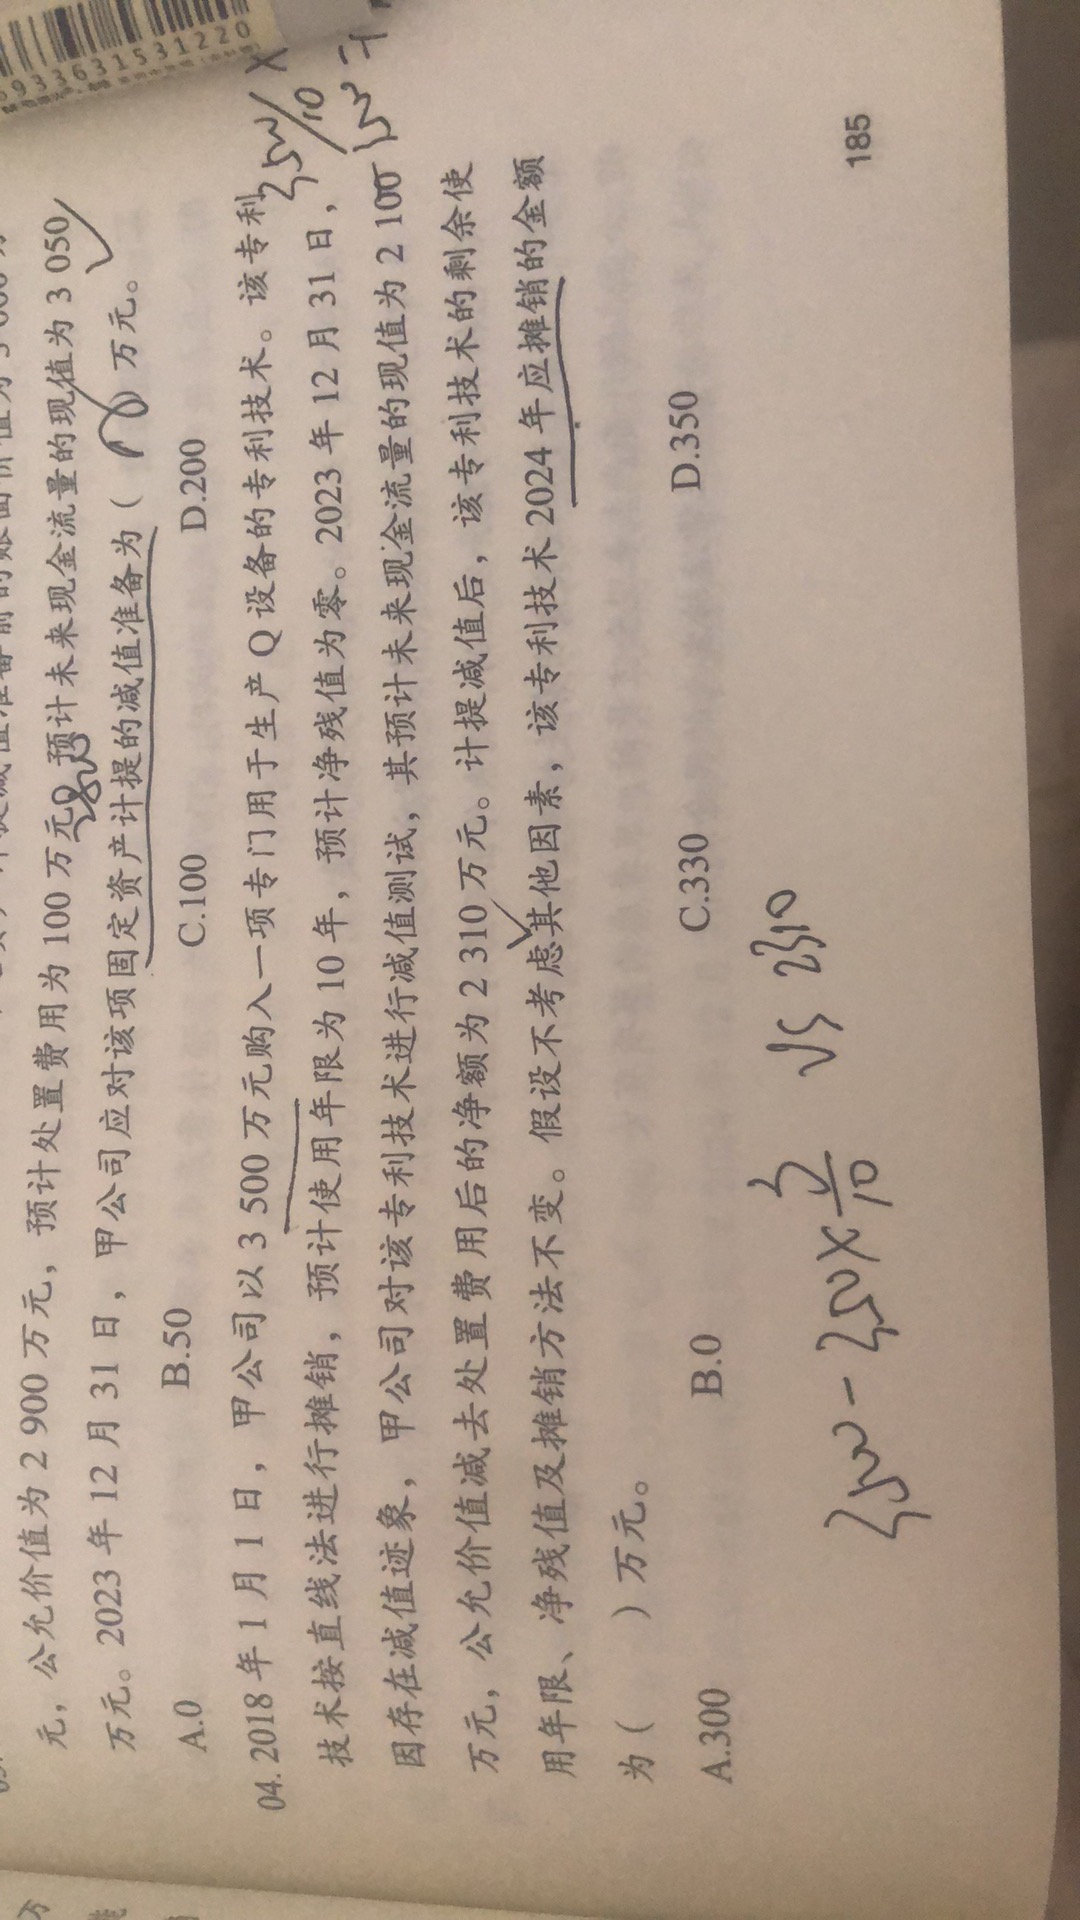 元，公允价值为 2 900 万元，预计处置费用为 100 万元，预计未来现金流量的现值为 3 050
万元。2023 年 12 月 31 日，甲公司应对该项固定资产计提的减值准备为（ ）万元。
A.0 B.50 C.100 D.200
04. 2018 年 1 月 1 日，甲公司以 3 500 万元购入一项专门用于生产 Q 设备的专利技术。该专利
技术按直线法进行摊销，预计使用年限为 10 年，预计净残值为零。2023 年 12 月 31 日，
因存在减值迹象，甲公司对该专利技术进行减值测试，其预计未来现金流量的现值为 2 100
万元，公允价值减去处置费用后的净额为 2 310 万元。计提减值后，该专利技术的剩余使
用年限、净残值及摊销方法不变。假设不考虑其他因素，该专利技术 2024 年应摊销的金额
为（ ）万元。
A.300 B.0 C.330 D.350
vs 2310
185
6933631531220